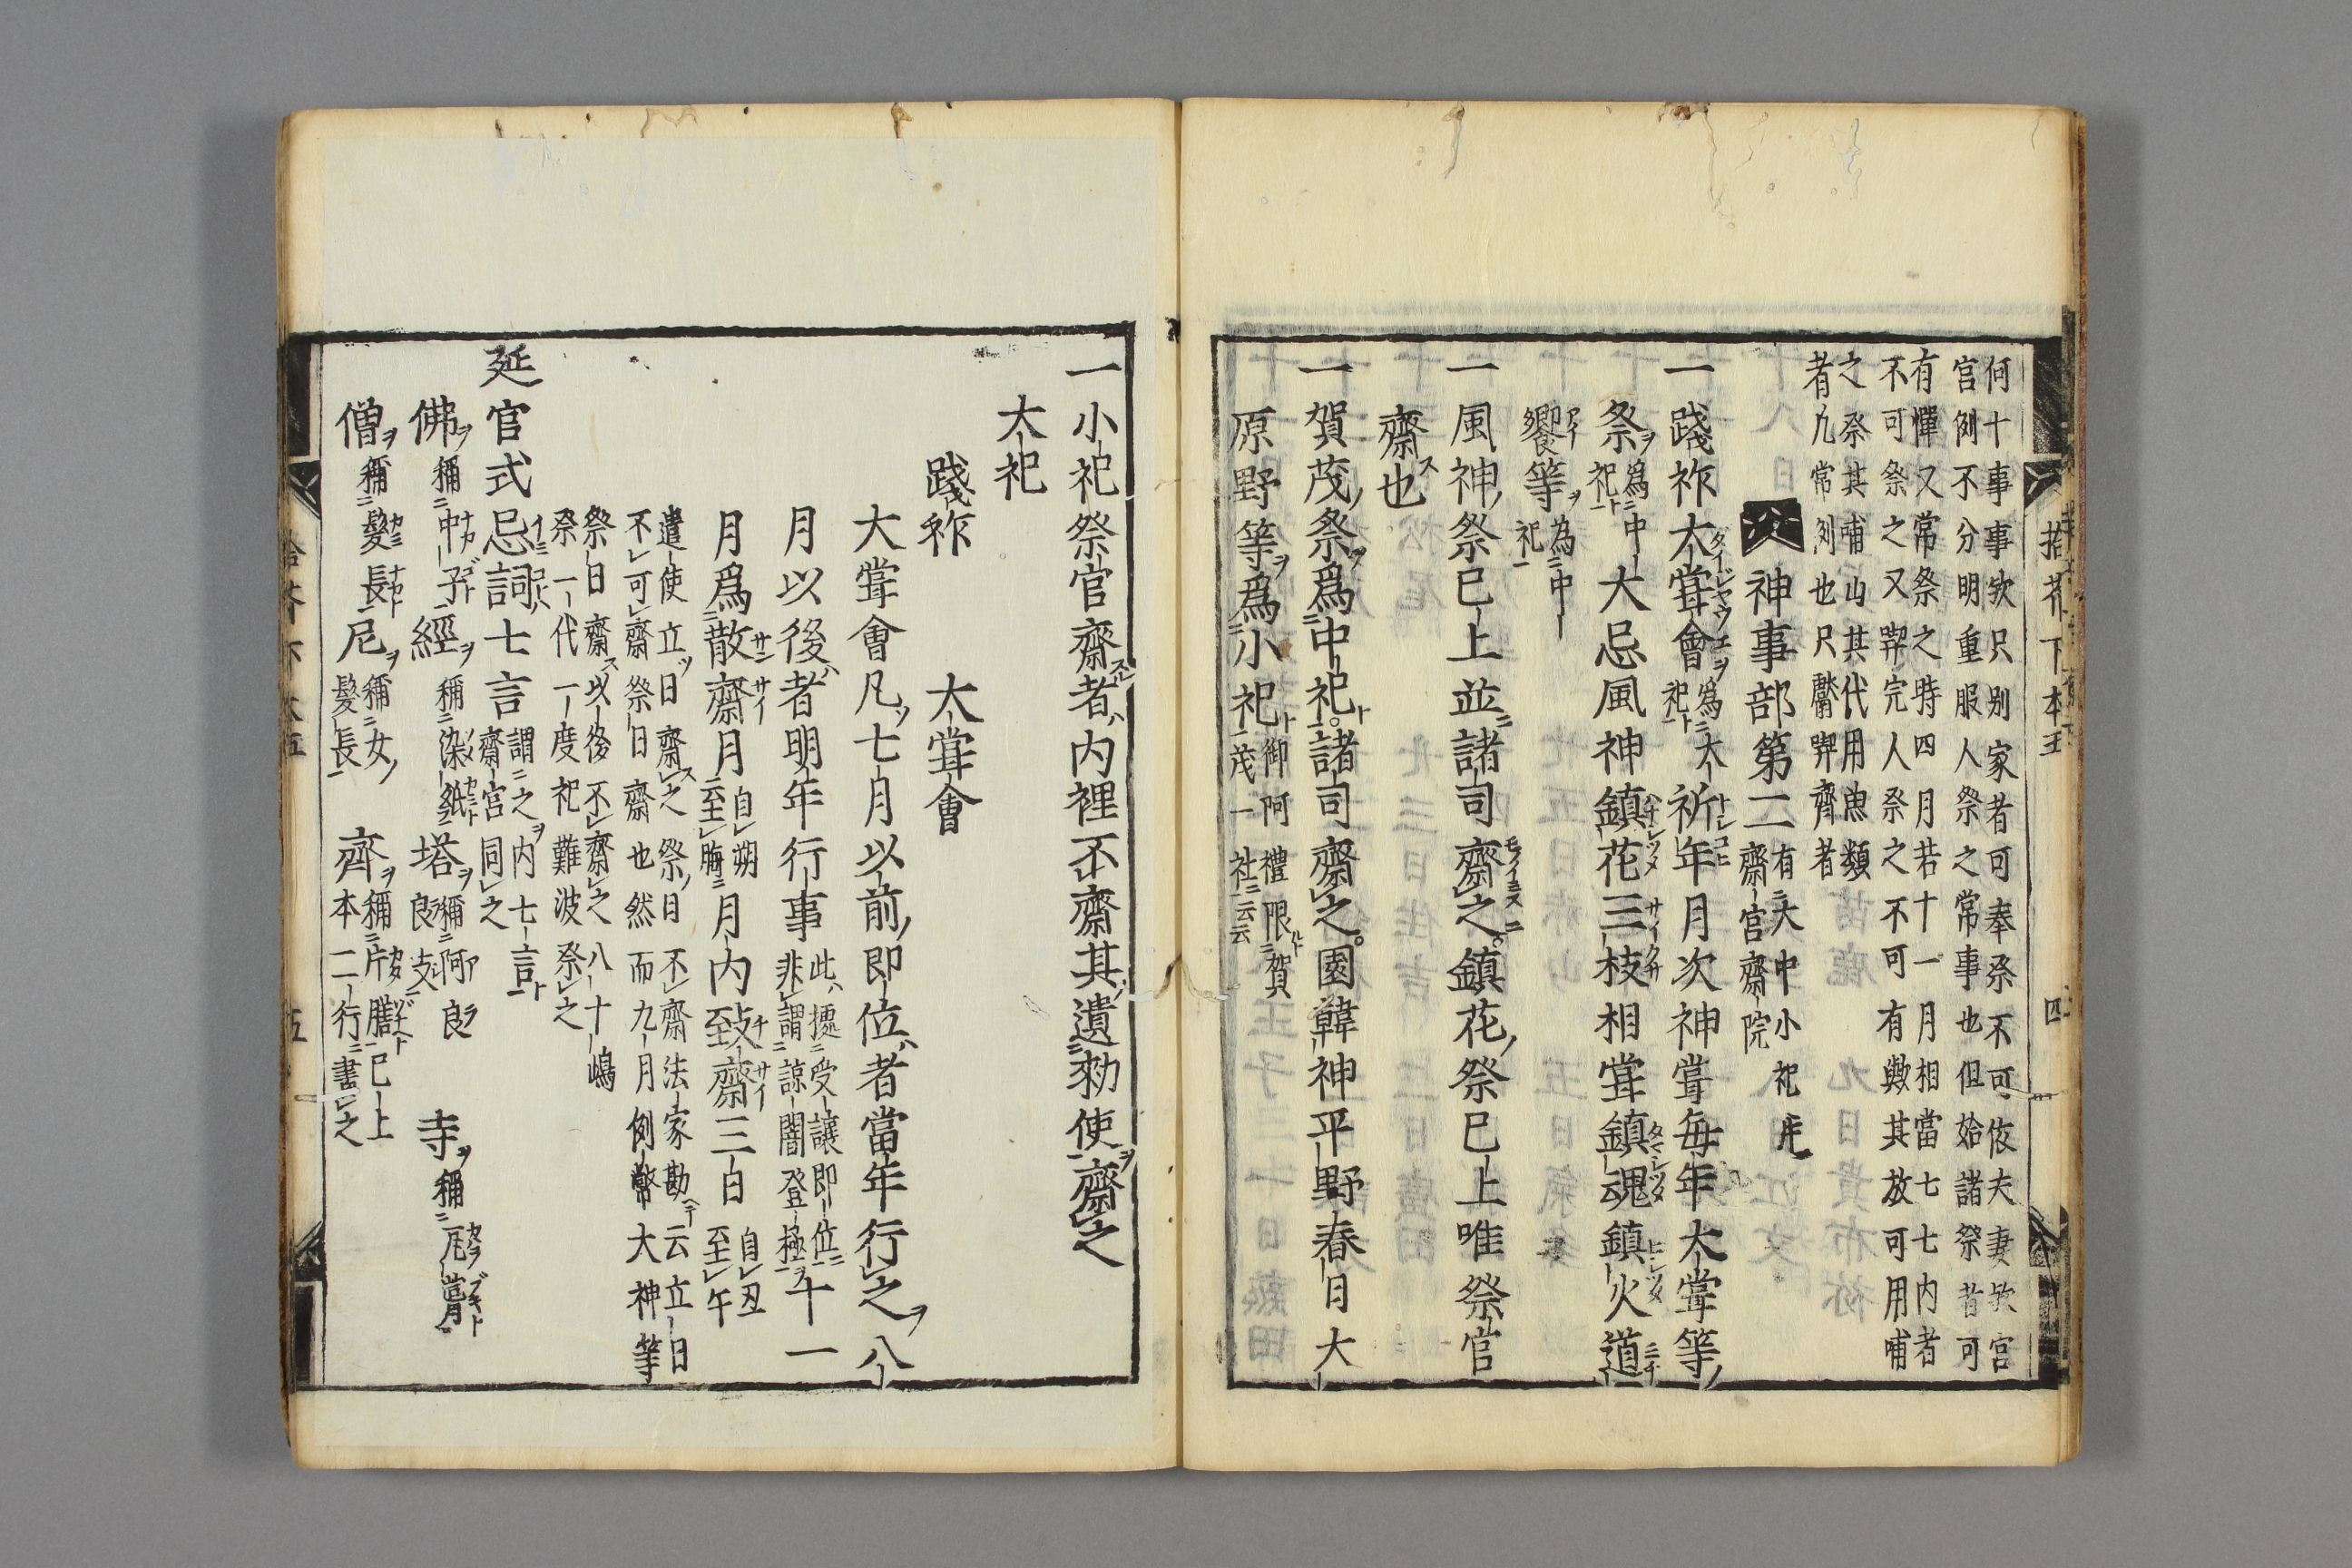 何十事事欤只別家者可奉祭不可依夫妻欤宮
宮例不分明重服人祭之常事也但始諸祭者可
有憚又常祭之時四月若十一月相當七七内者
不可祭之又弊完人祭之不可有與其放可用哺
之祭其哺山其代用魚類
者九常例也尺
神事部第二
有大中小祀
齋官齋院
一踐祚大甞會
爲大
祀
祈年月次神甞毎年大甞等
祭
爲中
祀
大忌風神鎮花三枝相甞鎮魂鎮火道
饗等
為中
祀
一風神祭巳上並諸司齋之鎮花祭巳上唯祭官
齋也
一賀茂祭爲中祀諸司齋之園韓神平野春日大
原野等爲小祀
御阿禮限賀
茂一社云云
拾芥下本 四
一小祀祭官齋者内裡不齋其遺勑使齋之
大祀
踐祚 大甞會
大甞會凡七月以前即位者當年行之八
月以後者明年行事
此據受讓即位
非謂諒闇登極
十一
月爲散齋月
自朔
至晦
月内致齋三日
自丑
至午
遣使立日齋之祭日不齋法家勘云立日
不可齋祭日齋也然而九月例幣大神等
祭日齋以後不齋之八十嶋
祭一代一度祀難波祭之
延官式忌詞七言
謂之内七言
齋宮同之
佛
稱中子
經
稱染紙
塔
稱阿良
良支
寺
稱瓦葺
僧
稱髮長
尼
稱女
髮長
齊
稱片膳巳上
本二行書之